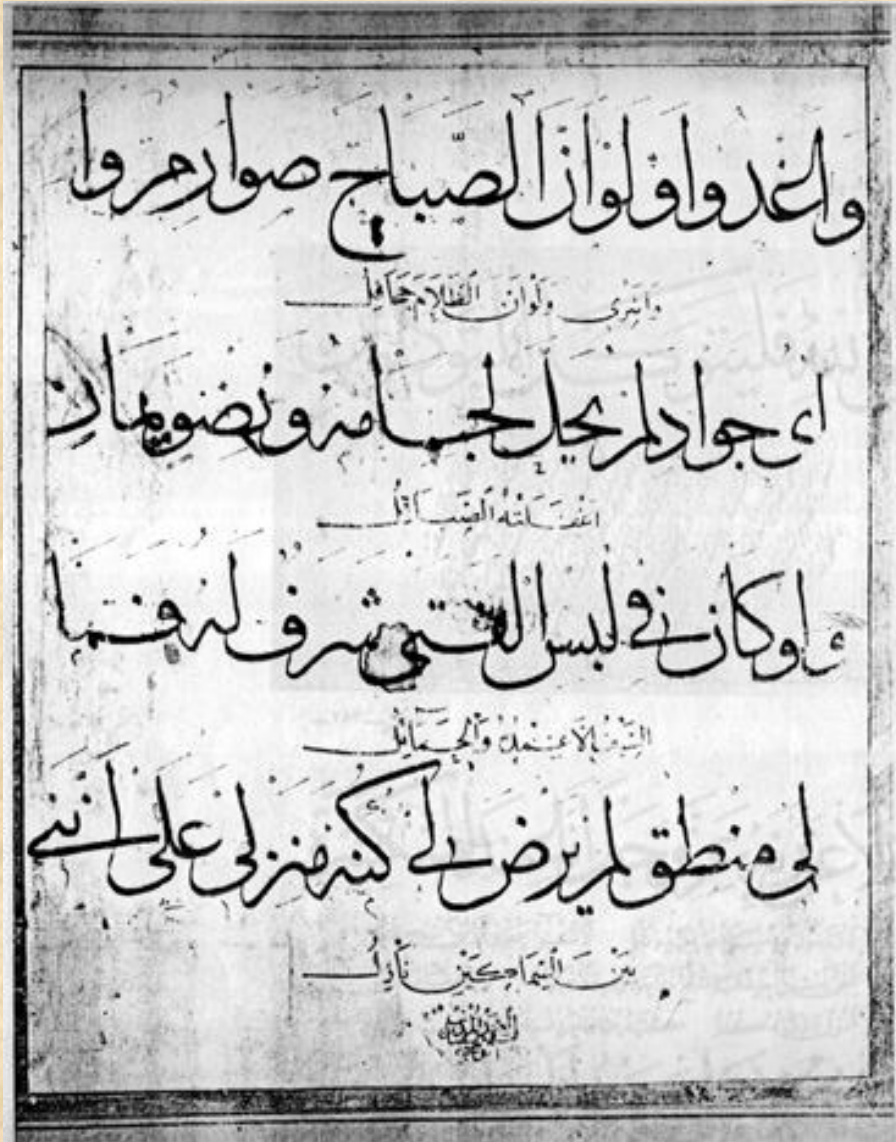 واغدوا ولو ان الصباح صوارم وا
واسري ولو ان الظلام جحافل
اى جواد لم يحل لجامه ونضو يمان
اغفلته الصياقل
ولو كان في لبس الفتى شرف له فما
السيف الا غمده والحمائل
لى منطق لم يرض لي كنه منزلى على اننى
بين السماكين نازل